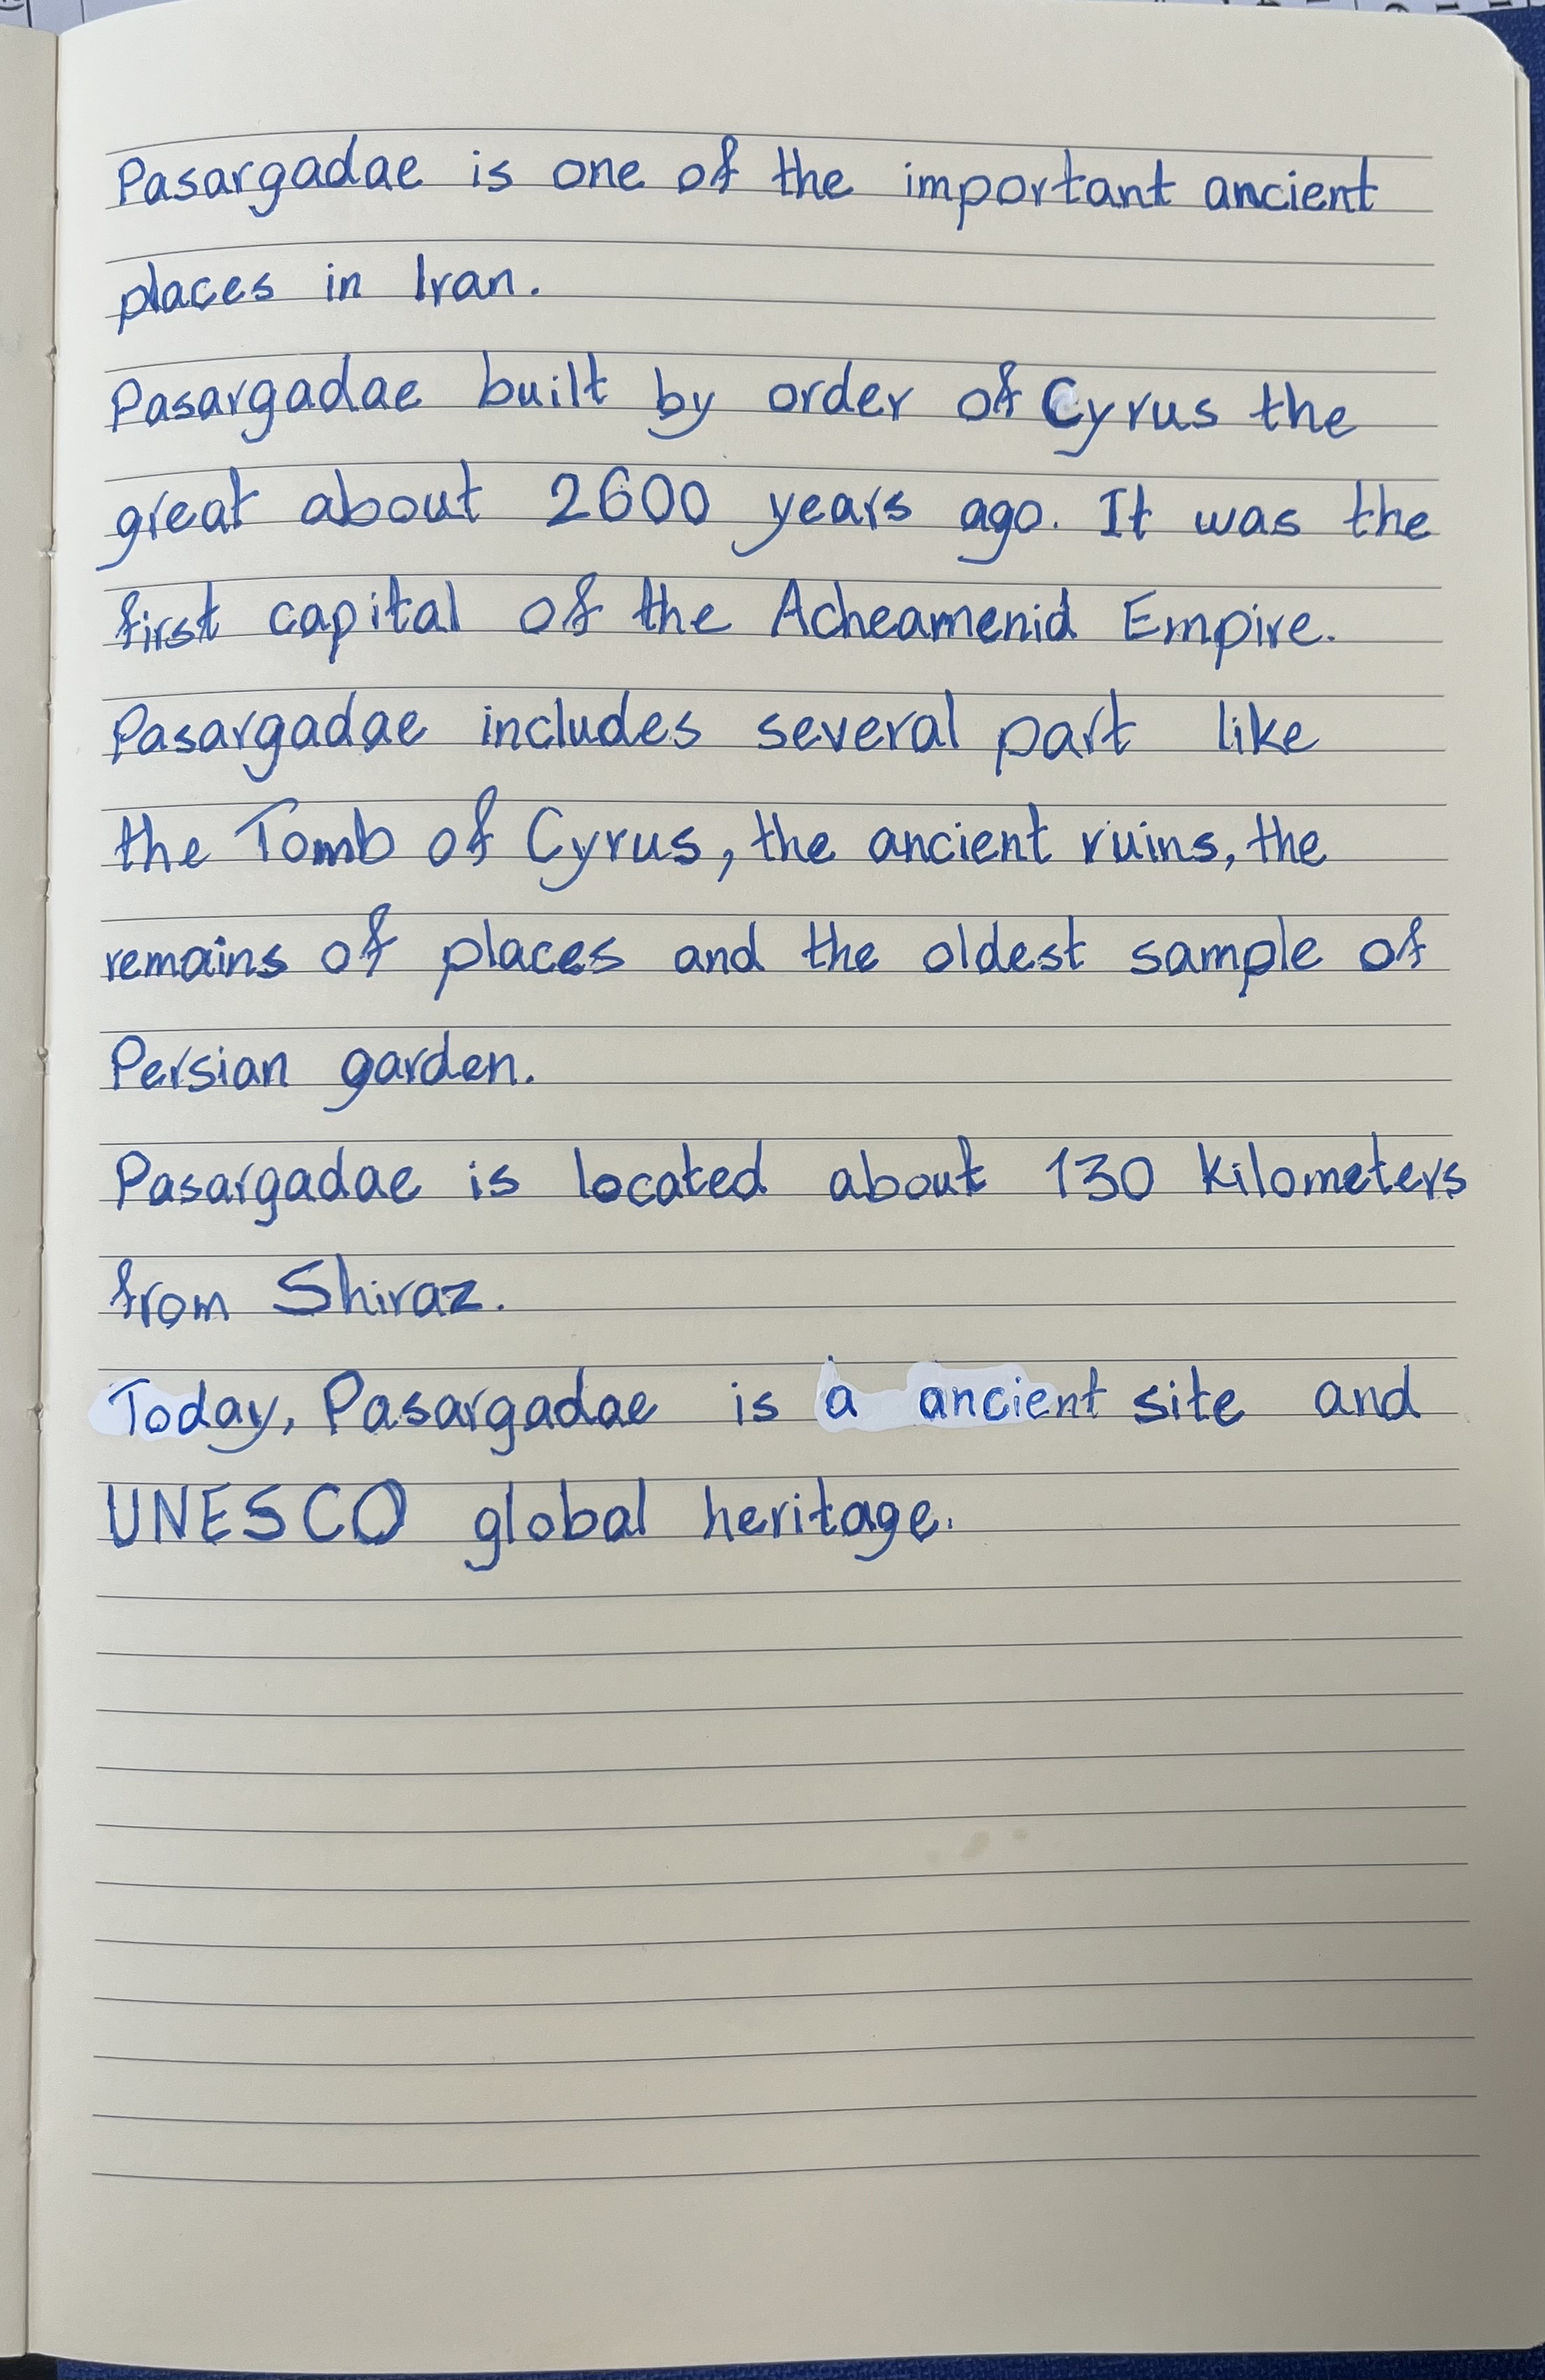 Pasargadae is one of the important ancient
places in Iran.
Pasargadae built by order of Cyrus the
great about 2600 years ago. It was the
first capital of the Acheamenid Empire.
Pasargadae includes several part like
the Tomb of Cyrus, the ancient ruins, the
remains of places and the oldest sample of
Persian garden.
Pasargadae is located about 130 kilometers
from Shiraz.
Today, Pasargadae is a ancient site and
UNESCO global heritage.